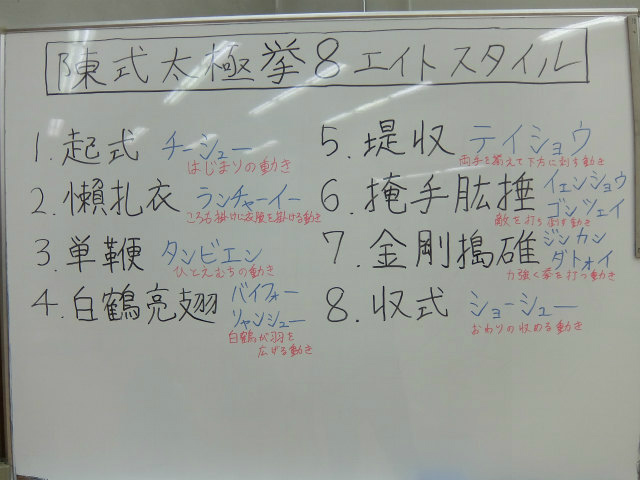 陳式太極拳8エイトスタイル
1. 起式 チーシュー
はじまりの動き
2. 懶扎衣 ランチャーイー
ころも掛けに衣服を掛ける動き
3. 単鞭 タンビエン
ひとえむちの動き
4. 白鶴亮翅 バイフォー
リャンシュー
白鶴が羽を
広げる動き
5. 堤収 テイショウ
両手を揃えて下方に刺す動き
6. 掩手肱捶 イエンショウ
ゴンツェイ
敵を打ち倒す動き
7. 金剛搗碓 ジンカン
ダトォイ
力強く拳を打つ動き
8. 収式 ショーシュー
おわりの収める動き